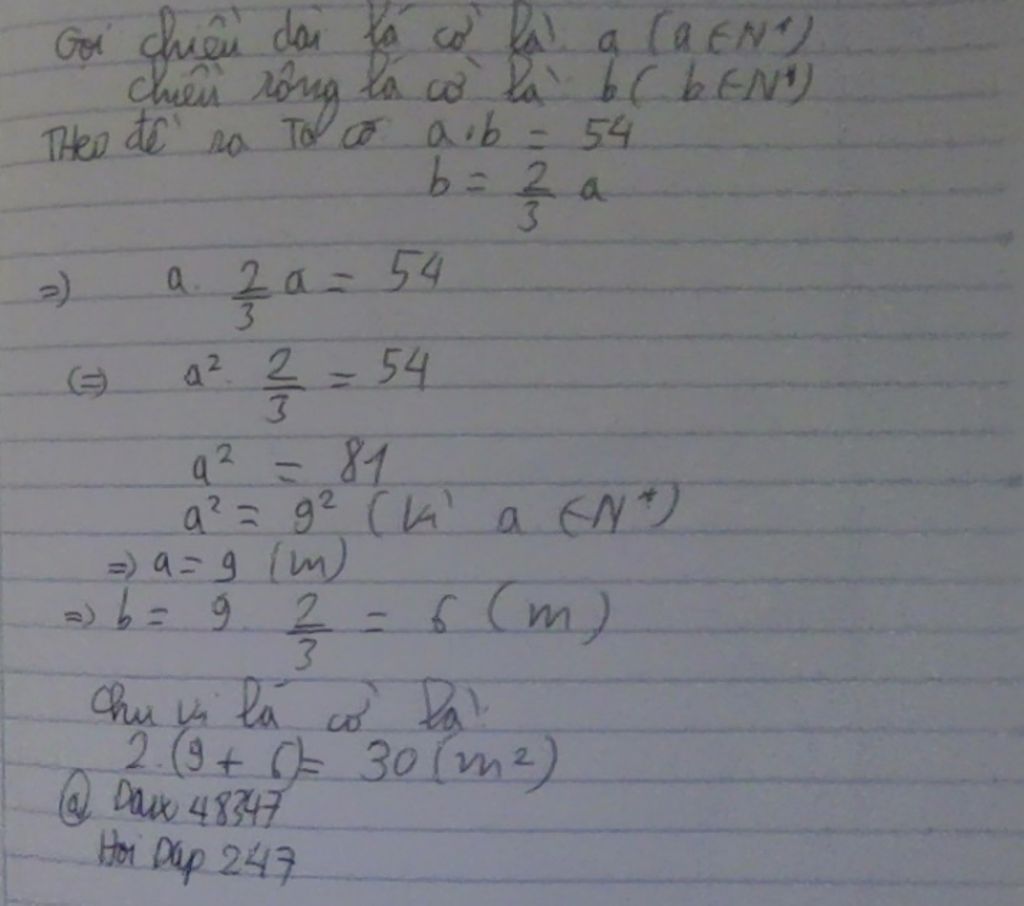 Gọi chiều dài lá cờ là: a (a ∈ N*)
chiều rộng lá cờ là: b ( b ∈ N*)
Theo đề ra Ta có a.b = 54
b = 2/3 a
=> a. 2/3 a = 54
<=> a². 2/3 = 54
a² = 81
a² = 9² (Vì a ∈ N*)
=> a = 9 (m)
=> b = 9. 2/3 = 6 (m)
Chu vi lá cờ là:
2.(9 + 6) = 30 (m²)
@ 48347
Hoi Dap 247